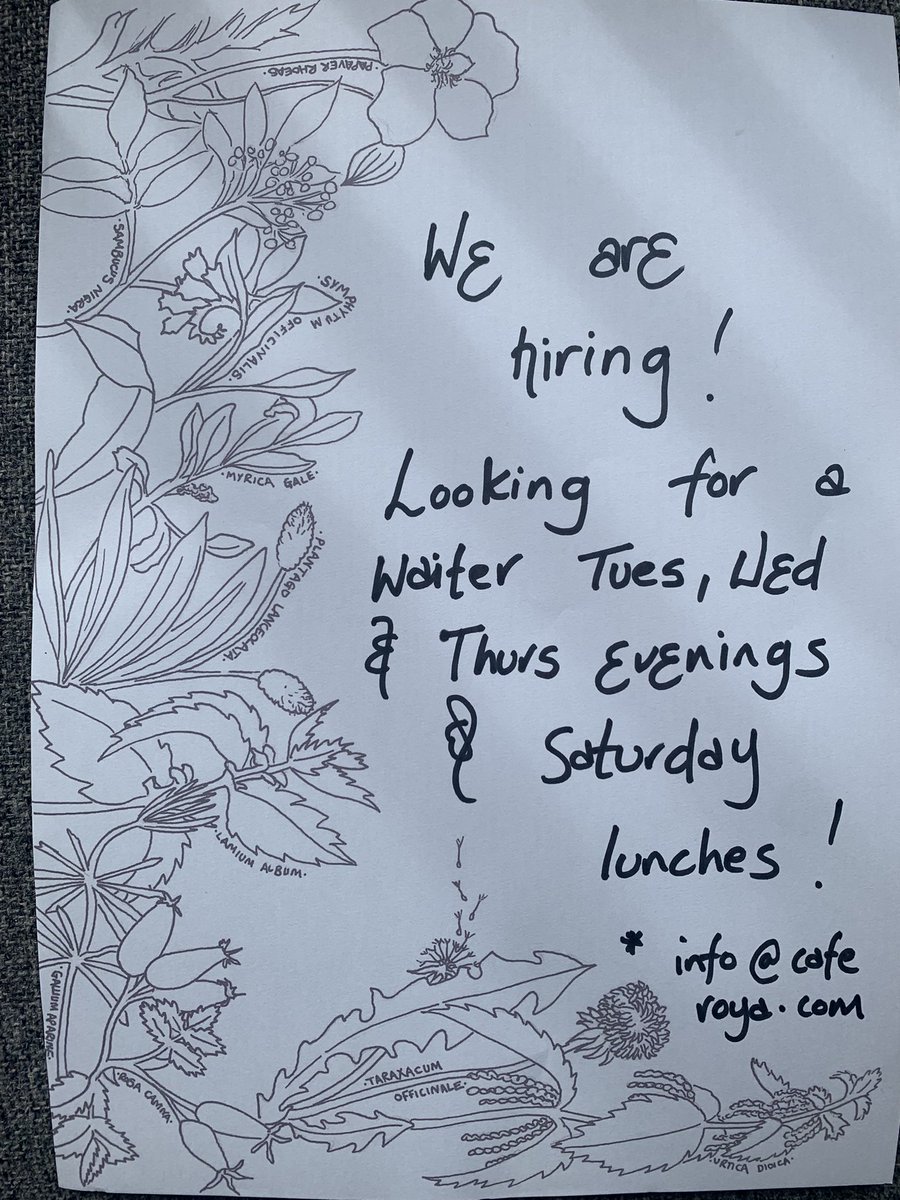 PAPAVER RHOEAS.
SAMBUCUS NIGRA.
SYMPHYTUM OFFICINALIS.
MYRICA GALE.
PLANTAGO LANCEOLATA.
LAMIUM ALBUM.
GALIUM APARINE.
ROSA CANINA.
TARAXACUM
OFFICINALE.
URTICA DIOICA.
We are
hiring!
Looking for a
Waiter Tues, Wed
& Thurs evenings
& Saturday
lunches!
* info@cafe
roya.com